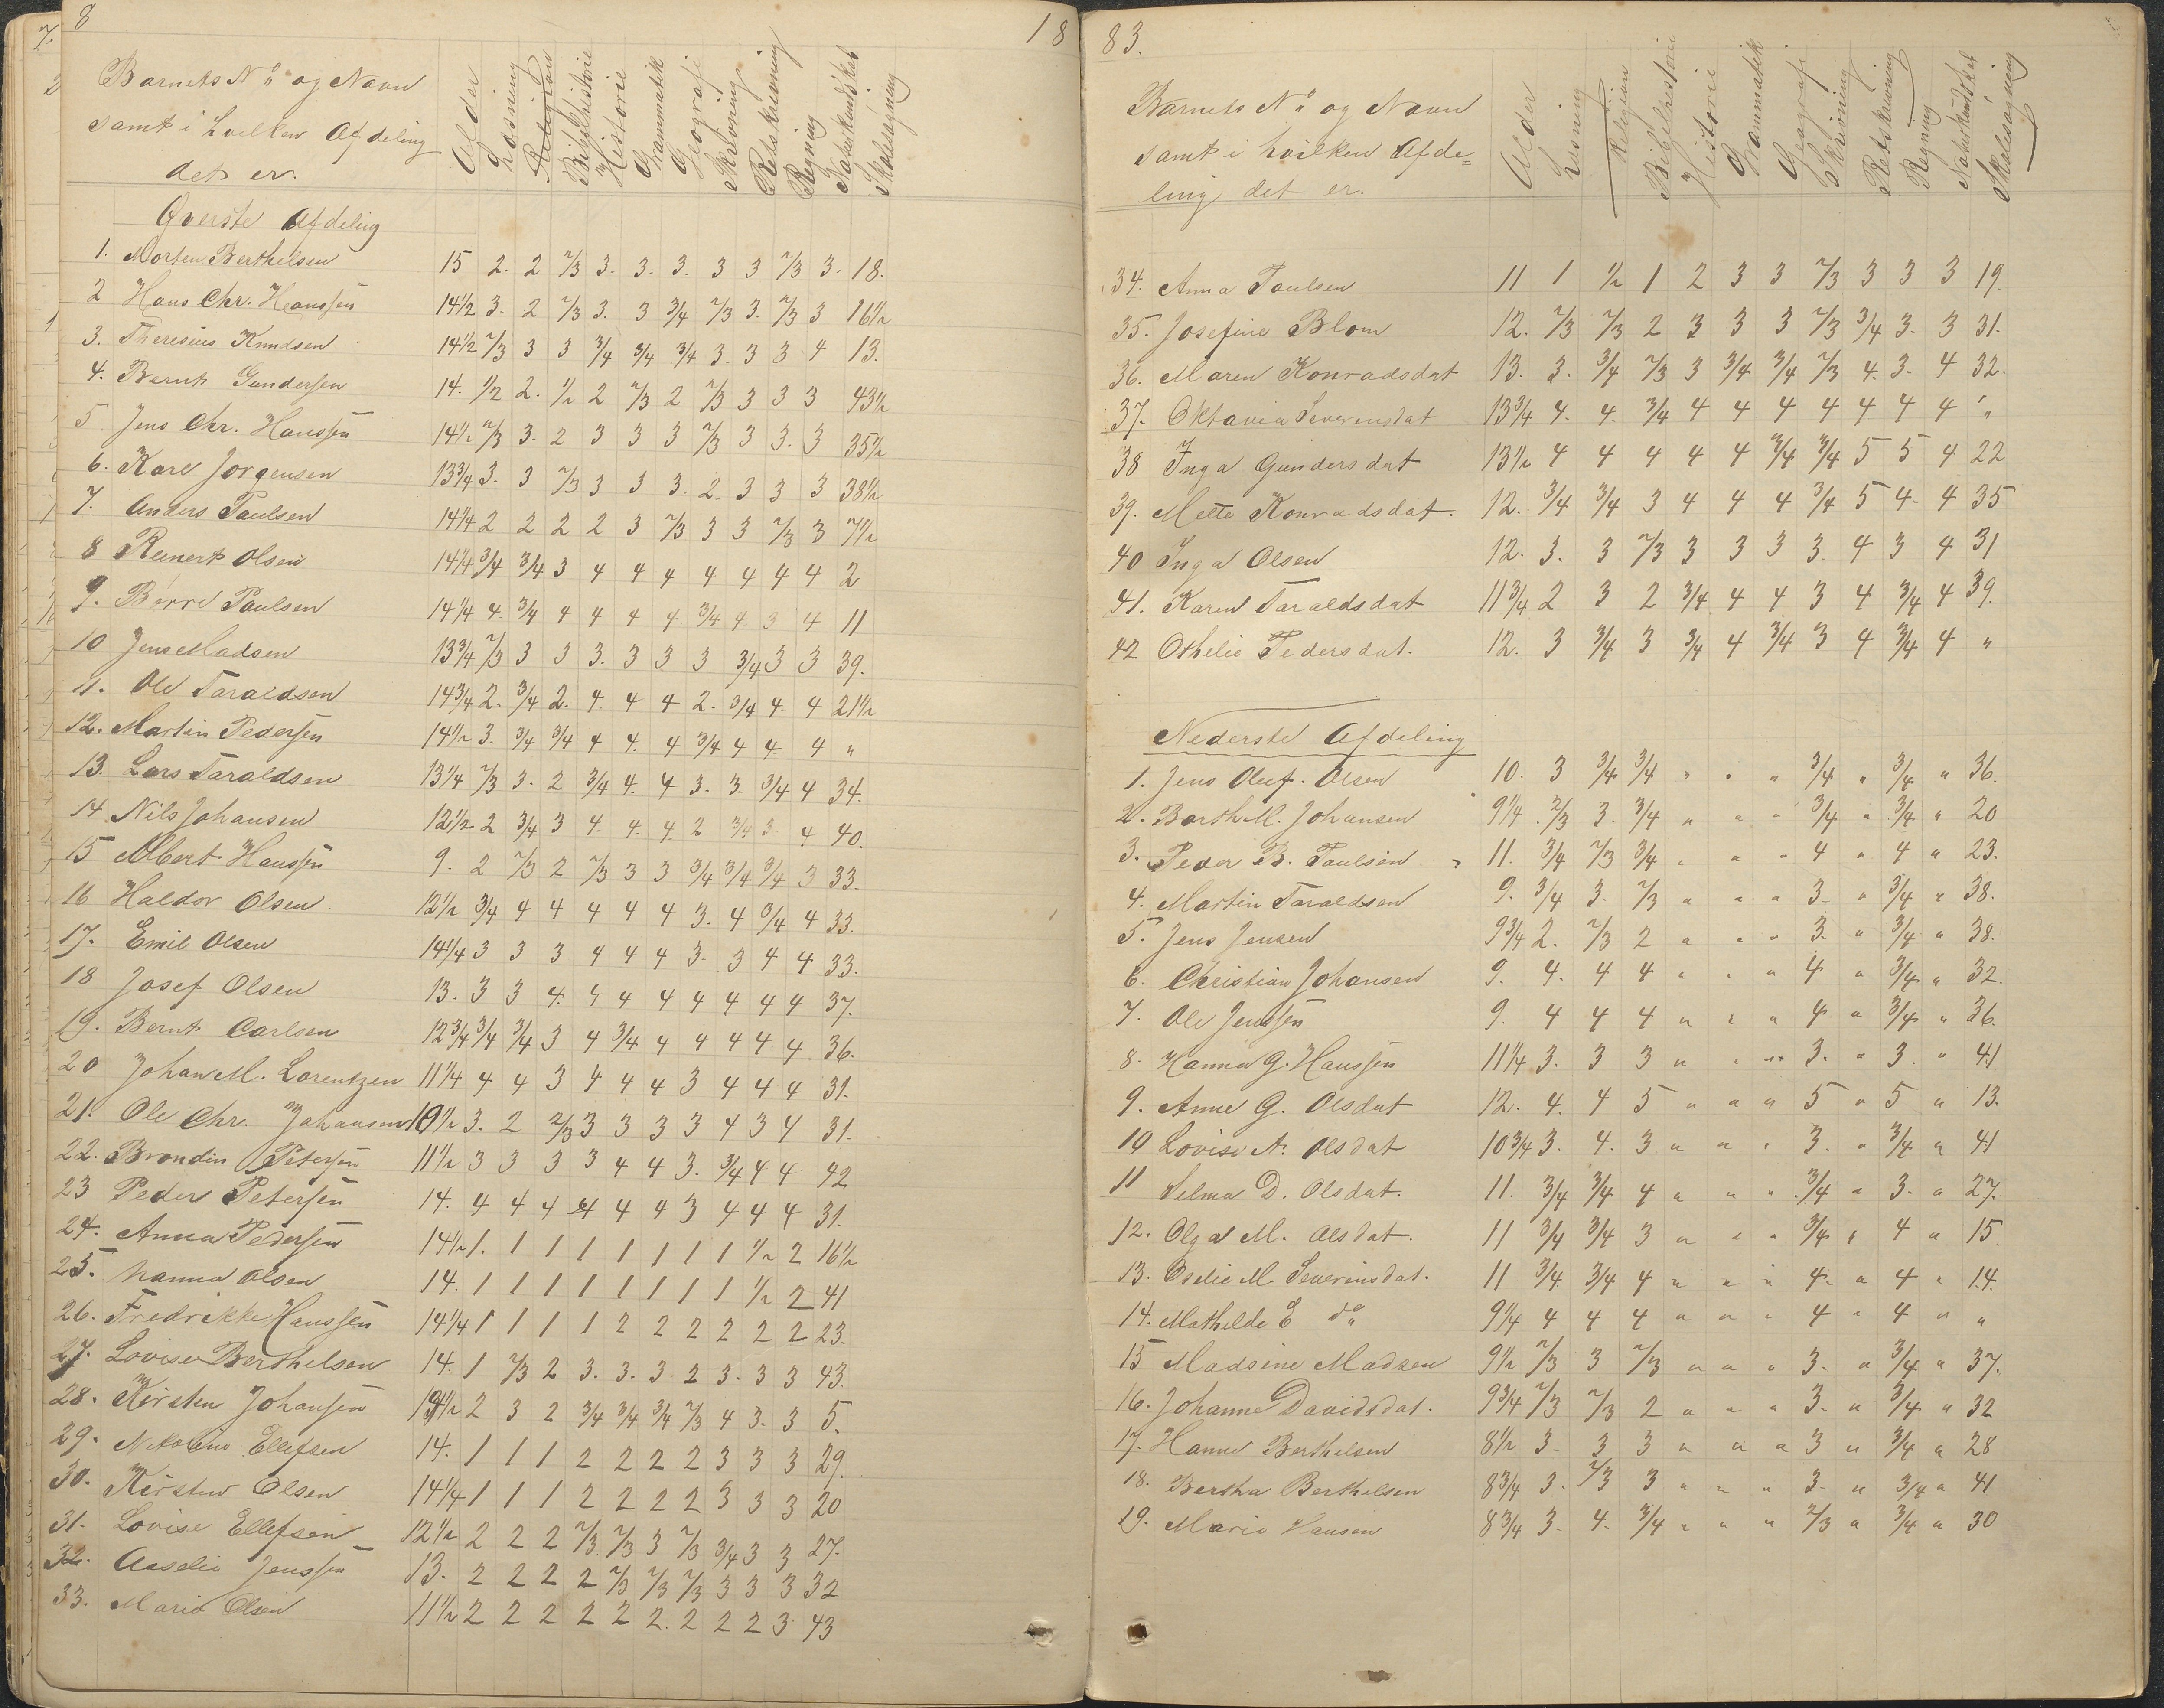 8
18
Barnets No og Navn
samt i hvilken Afdeling
det er.
Alder Læsning Religion Bibelhistorie Historie Grammatik Geografi Skrivning Retskrivning Regning Naturkundskab Skolesøgning
Øverste Afdeling
1. Morten Berthelsen 15 2. 2 2/3 3. 3. 3. 3 3 2/3 3. 18.
2 Hans Chr. Hanssen 14 1/2 3. 2 2/3 3. 3 3/4 2/3 3. 2/3 3 16 1/2
3. Theresius Knudsen 14 1/2 2/3 3 3 3/4 3/4 3/4 3. 3 3 4 13.
4. Bernt Gundersen 14. 1/2 2. 1/2 2 2/3 2 2/3 3 3 3 43 1/2
5 Jens Chr. Hanssen 14 1/2 2/3 3. 2 3 3 3 2/3 3 3. 3 35 1/2
6. Karl Jørgensen 13 3/4 3. 3 2/3 3 3 3. 2. 3 3 3 38 1/2
7. Anders Paulsen 14 1/4 2 2 2 2 3 2/3 3 3 2/3 3 71/2
8 Reinert Olsen 14 1/4 3/4 3/4 3 4 4 4 4 4 4 4 2
9. Børre Paulsen 14 1/4 4. 3/4 4 4 4 4 3/4 4 3 4 11
10 Jens Madsen 13 3/4 2/3 3 3 3. 3 3 3 3/4 3 3 39.
11. Ole Taraldsen 14 3/4 2. 3/4 2. 4. 4 4 2. 3/4 4 4 21 1/2
12. Martin Pedersen 14 1/2 3. 3/4 3/4 4 4. 4 3/4 4 4. 4 "
13. Lars Taraldsen 13 1/4 2/3 3. 2 3/4 4. 4 3. 3. 3/4 4 34.
14 Nils Johansen 12 1/2 2 3/4 3 4. 4. 4. 2 3/4 3. 4 40.
15 Albert Hanssen 9. 2 2/3 2 2/3 3 3 3/4 3/4 3/4 3 33.
16 Haldor Olsen 12 1/2 3/4 4 4 4 4 4 3. 4 3/4 4 33.
17. Emil Olsen 14 1/4 3 3 3 4 4 4 3. 3 4 4 33.
18 Josef Olsen 13. 3 3 4. 4 4 4 4 4 4 4 37.
19. Bernt Carlsen 12 3/4 3/4 3/4 3 4 3/4 4 4 4 4 4 36.
20 Johan M. Lorentzen 11 1/4 4 4 3 4 4 4 3 4 4 4 31.
21. Ole Chr. Johansen 10 1/2 3. 2 2/3 3 3 3 3 4 3 4 31.
22. Brondin Petersen 11 1/2 3 3 3 3 4 4 3. 3/4 4 4. 42
23 Peder Petersen 14. 4 4 4 4 4 4 3 4 4 4 31.
24. Anna Pedersen 14 1/2 1. 1 1 1 1 1 1 1 1/2 2 16 1/2
25. Hanna Olsen 14. 1 1 1 1 1 1 1 1 1/2 2 41
26. Fredrikke Hanssen 14 1/4 1 1 1 1 2 2 2 2 2 2 23.
27. Lovise Berthelsen 14. 1 2/3 2 3. 3. 3 2 3. 3 3 43.
28. Kirsten Johansen 2 3 2 3/4 3/4 3/4 2/3 4 3. 3 5.
29. Nikoline Ellefsen 14. 1 1 1 2 2 2 2 3 3 3 29.
30. Kirstine Olsen 14 1/4 1 1 1 2 2 2 2 3 3 3 20
31. Lovise Ellefsen 12 1/2 2 2 2 2/3 2/3 3 2/3 3/4 3 3 27.
32. Aaselie Jenssen 13. 2 2 2 2 2/3 2/3 2/3 3 3 3 32
33. Marie Olsen 11 1/2 2 2 2 2 2 2. 2 2 2 3 43
83.
Barnets No og Navn
samt i hvilken Afde=
ling det er.
Alder Læsning Religion Bibelhistorie Historie Grammatik Geografi Skrivning Retskrivning Regning Naturkundskab Skolesøgning
34. Anna Paulsen 11 1 1/2 1 2 3 3 2/3 3 3 3 19.
35. Josefine Blom 12. 2/3 2/3 2 3 3 3 2/3 3/4 3. 3 31.
36. Maren Konradsdat 13. 3. 3/4 2/3 3 3/4 3/4 2/3 4. 3. 4 32.
37. Oktavia Severinsdat 13 3/4 4. 4. 3/4 4 4 4 4 4 4 4 "
38 Inga Gundersdat 13 1/2 4 4 4 4 4 3/4 3/4 5 5 4 22
39. Mette Konradsdat. 12. 3/4 3/4 3 4 4 4 3/4 5 4 4 35
40 Inga Olsen 12. 3. 3 2/3 3 3 3 3. 4 3 4 31
41. Karen Taraldsdat 11 3/4 2 3 2 3/4 4 4 3 4 3/4 4 39.
42 Othelie Pedersdat. 12. 3 3/4 3 3/4 4 3/4 3 4 3/4 4 "
Nederste Afdeling
1. Jens Oluf. Olsen 10. 3 3/4 3/4 " " " 3/4 " 3/4 " 36.
2. Barth M. Johansen 9 1/4 2/3 3. 3/4 " " " 3/4 " 3/4 " 20
3. Peder B. Paulsen 11. 3/4 2/3 3/4 " " " 4 " 4 " 23.
4. Martin Taraldsen 9. 3/4 3. 2/3 " " " 3. " 3/4 " 38.
5. Jens Jensen 9 3/4 2. 2/3 2 " " " 3. " 3/4 " 38.
6. Christian Johansen 9. 4. 4 4 " " " 4 " 3/4 " 32.
7. Ole Jenssen 9. 4 4 4 " " " 4 " 3/4 " 36.
8. Hanna G. Hanssen 11 1/4 3. 3 3 " " " 3. " 3. " 41
9. Anne G. Olsdat 12. 4. 4 5 " " " 5 " 5 " 13.
10 Lovise A. Olsdat 10 3/4 3. 4. 3 " " " 3. " 3/4 " 41
11 Selma D. Olsdat. 11. 3/4 3/4 4 " " " 3/4 " 3. " 27.
12. Olga M. Olsdat. 11 3/4 3/4 3 " " " 3/4 " 4 " 15
13. Oselie M. Severinsdat. 11 3/4 3/4 4 " " " 4. " 4 " 14.
14. Mathilde E do 9 1/4 4 4 4 " " " 4 " 4 " "
15 Madsine Madsen 9 1/2 2/3 3 2/3 " " " 3. " 3/4 " 37.
16. Johanne Davidsdat. 9 3/4 2/3 2/3 2 " " " 3. " 3/4 " 32
17. Hanne Berthelsen 8 1/2 3. 3 3 " " " 3 " 3/4 " 28
18. Bertha Berthelsen 8 3/4 3. 2/3 3 " " " 3. " 3/4 " 41
19. Marie Hansen 8 3/4 3. 4. 3/4 " " " 2/3 " 3/4 " 30